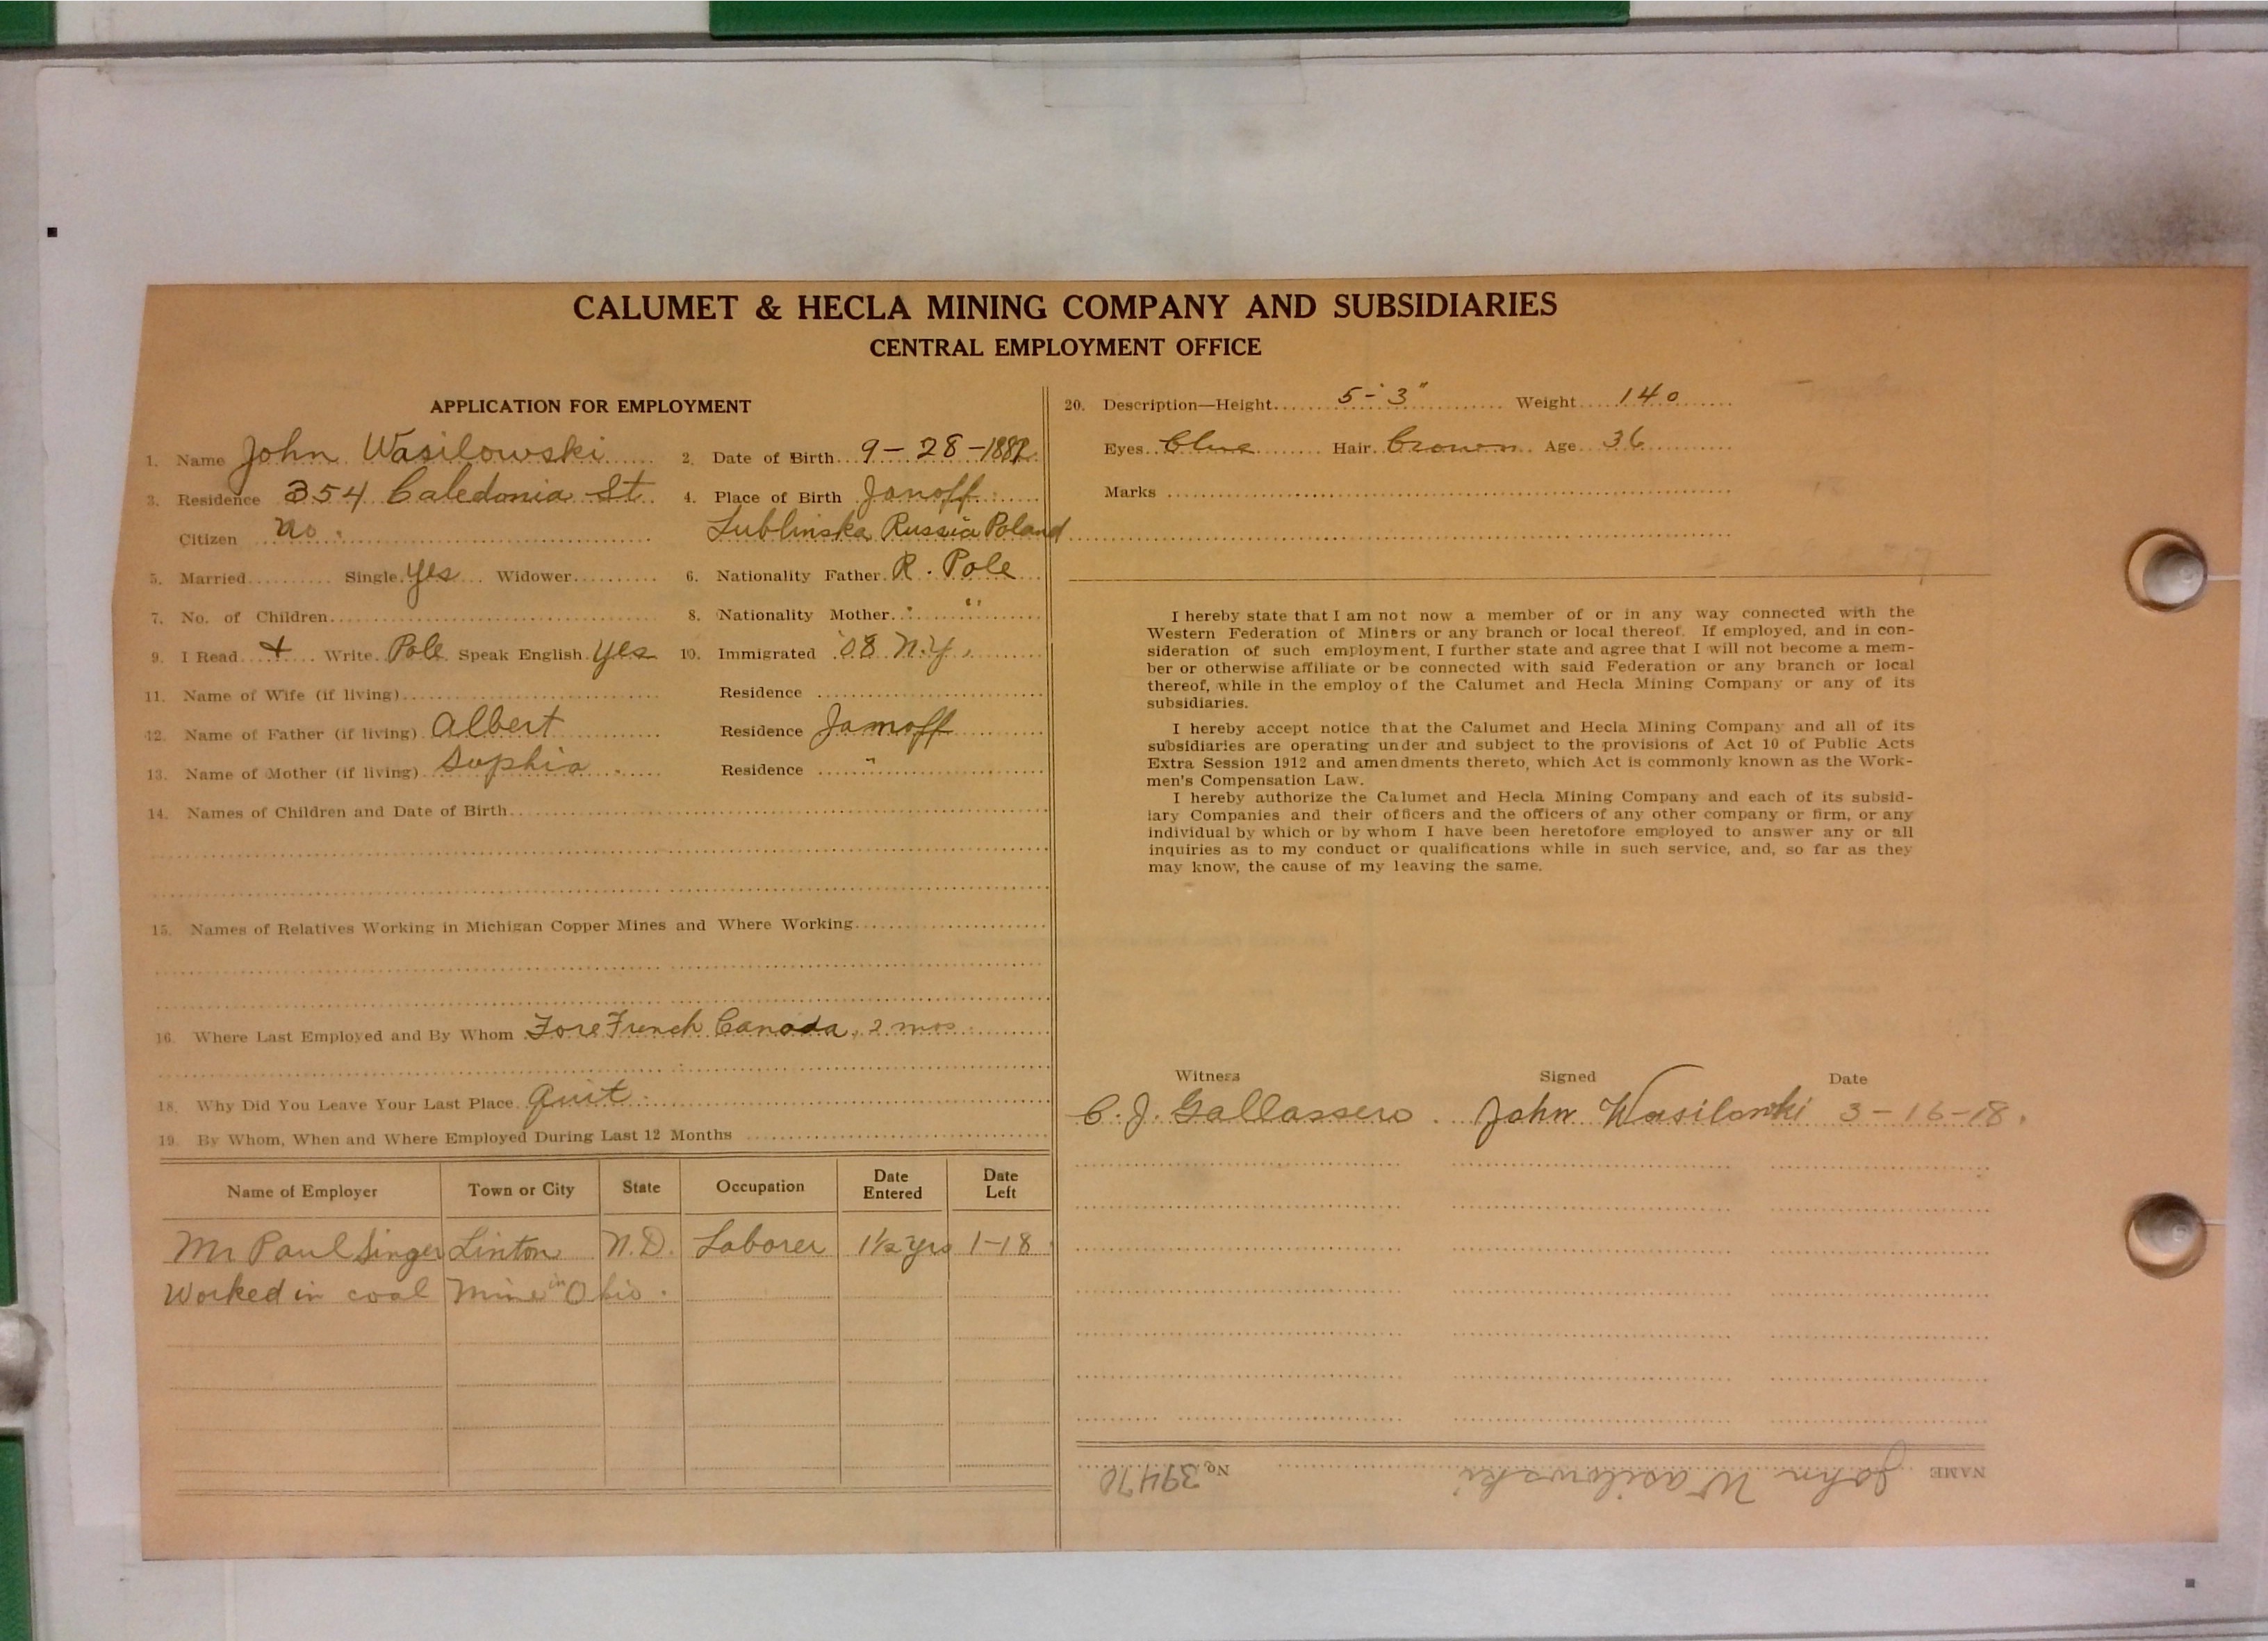 CALUMET & HECLA MINING COMPANY AND SUBSIDIARIES
CENTRAL EMPLOYMENT OFFICE
APPLICATION FOR EMPLOYMENT
1. Name John Wasilowski 2. Date of Birth 9-28-1882
3. Residence 354 Caledonia St. 4. Place of Birth Janoff
Citizen no. Lublinska Russia Poland
5. Married Single yes Widower 6. Nationality Father R. Pole
7. No. of Children 8. Nationality Mother " "
9. I Read + Write Pole Speak English yes 10. Immigrated '08 N.Y.
11. Name of Wife (if living) Residence
12. Name of Father (if living) Albert Residence Janoff
13. Name of Mother (if living) Sophia Residence "
14. Names of Children and Date of Birth
15. Names of Relatives Working in Michigan Copper Mines and Where Working
16. Where Last Employed and By Whom French Canada, 2 mos
18. Why Did You Leave Your Last Place Quit
19. By Whom, When and Where Employed During Last 12 Months
Name of Employer Town or City State Occupation Date Entered Date Left
Mr Paul Singer Linton N.D. Laborer 1½ yrs 1-18
Worked in coal mine in Ohio.
20. Description—Height 5-'3" Weight 140
Eyes Blue Hair Brown Age 36
Marks
I hereby state that I am not now a member of or in any way connected with the
Western Federation of Miners or any branch or local thereof. If employed, and in con-
sideration of such employment, I further state and agree that I will not become a mem-
ber or otherwise affiliate or be connected with said Federation or any branch or local
thereof, while in the employ of the Calumet and Hecla Mining Company or any of its
subsidiaries.
I hereby accept notice that the Calumet and Hecla Mining Company and all of its
subsidiaries are operating under and subject to the provisions of Act 10 of Public Acts
Extra Session 1912 and amendments thereto, which Act is commonly known as the Work-
men's Compensation Law.
I hereby authorize the Calumet and Hecla Mining Company and each of its subsid-
iary Companies and their officers and the officers of any other company or firm, or any
individual by which or by whom I have been heretofore employed to answer any or all
inquiries as to my conduct or qualifications while in such service, and, so far as they
may know, the cause of my leaving the same.
Witness Signed Date
C. J. Gallassero. John Wasilowski 3-16-18.
NAME John Wasilowski No. 39470